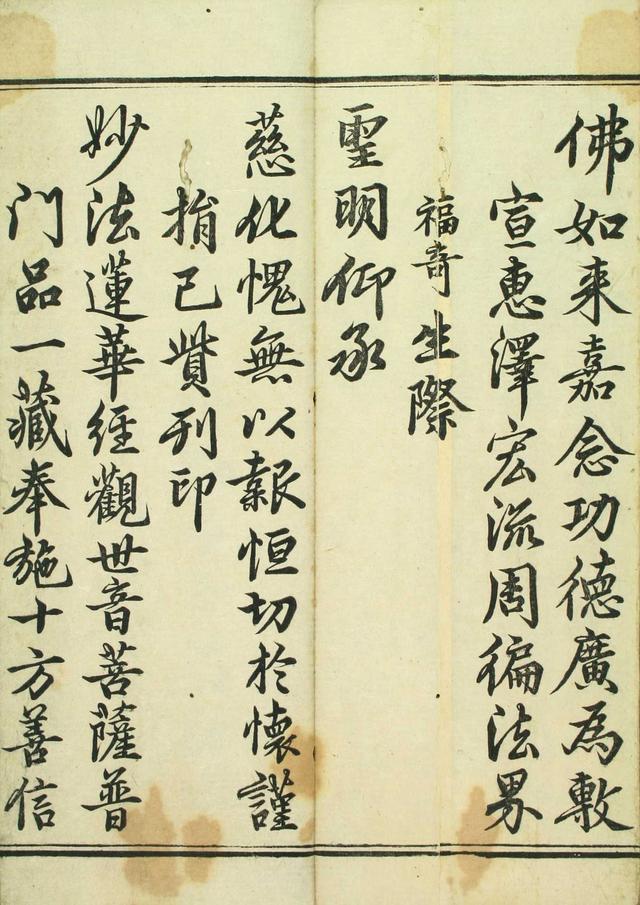 佛如来嘉念功德廣為敷
宣惠澤宏流周徧法界
福奇生際
聖明仰承
慈化愧無以報恒切於懷謹
捐已貲刋印
妙法蓮華經觀世音菩薩普
门品一藏奉施十方善信